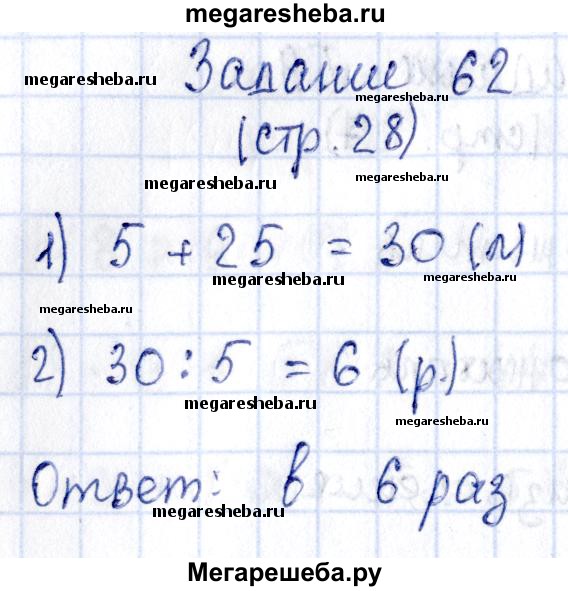 megaresheba.ru
Задание 62
megaresheba.ru
megaresheba.ru
(стр. 28)
megaresheba.ru
megaresheba.ru
1) 5 + 25 = 30 (л)
megaresheba.ru
megaresheba.ru
megaresheba.ru
2) 30 : 5 = 6 (р.)
megaresheba.ru
megaresheba.ru
Ответ: в 6 раз
megaresheba.ru
megaresheba.ru
Мегарешеба.ру